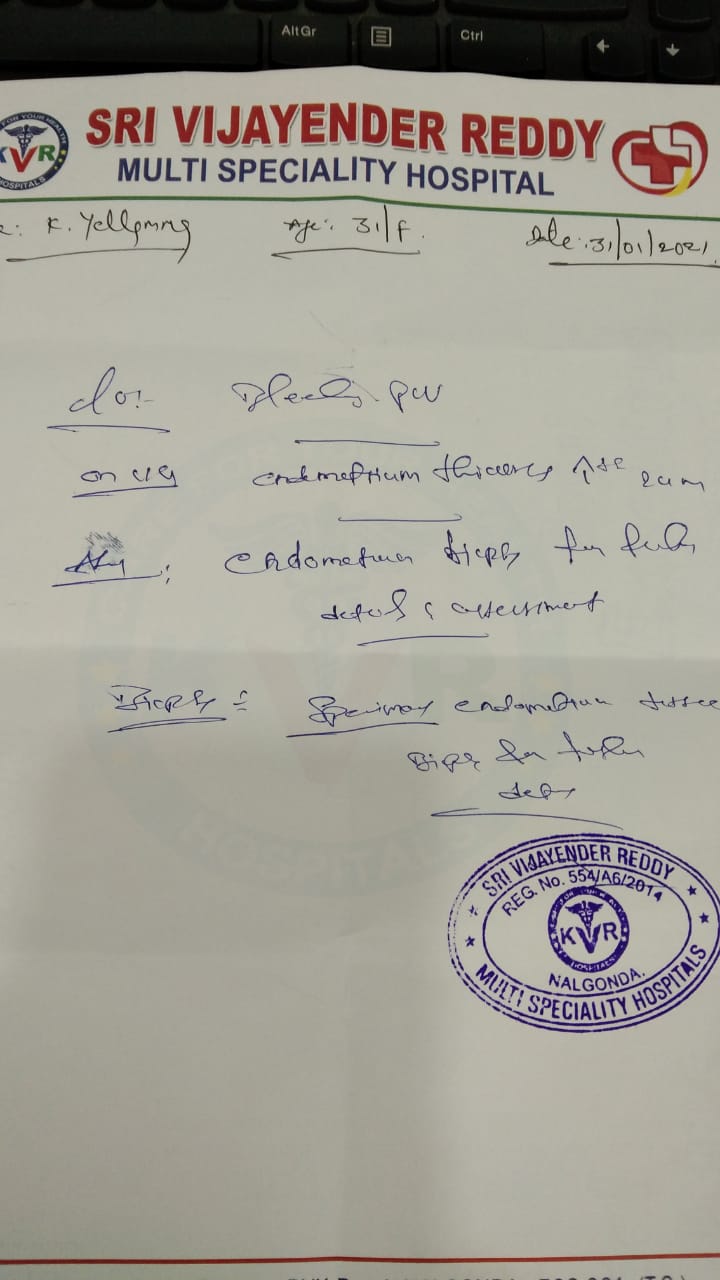 Alt Gr
Ctrl
FOR YOUR HEALTH
KVR
HOSPITALS
SRI VIJAYENDER REDDY
MULTI SPECIALITY HOSPITAL
e: K. Yellamma Age: 31/F. Date: 31/01/2021
c/o:- Bleeding PV
on USG endometrium thickness 2cm
endometrium Biopsy for
details & assessment
Biopsy :- Specimen endometrium tissue
for
SRI VIJAYENDER REDDY
REG. No. 554/A6/2014
KVR
HOSPITALS
NALGONDA.
MULTI SPECIALITY HOSPITALS